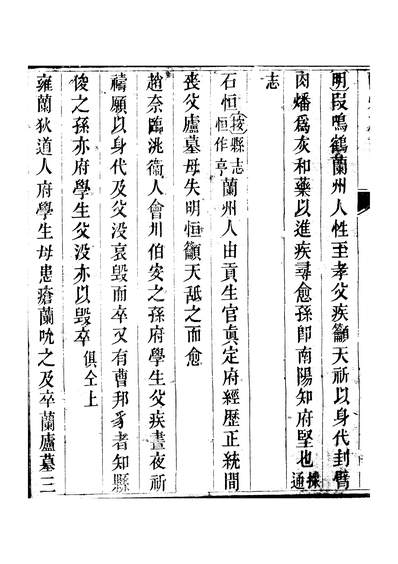 明段鳴鶴蘭州人性至孝父疾籲天祈以身代封臂
肉燔爲灰和藥以進疾尋愈孫即南陽知府堅也據通
志
石恒按縣志恒作亨蘭州人由貢生官眞定府經歷正統間
喪父廬墓母失明恒籲天舐之而愈
趙奈臨洮衞人會川伯安之孫府學生父疾晝夜祈
禱願以身代及父没哀毁而卒又有曹邦豸者知縣
俊之孫亦府學生父没亦以毁卒俱仝上
雍蘭狄道人府學生母患瘡蘭吮之及卒蘭廬墓三